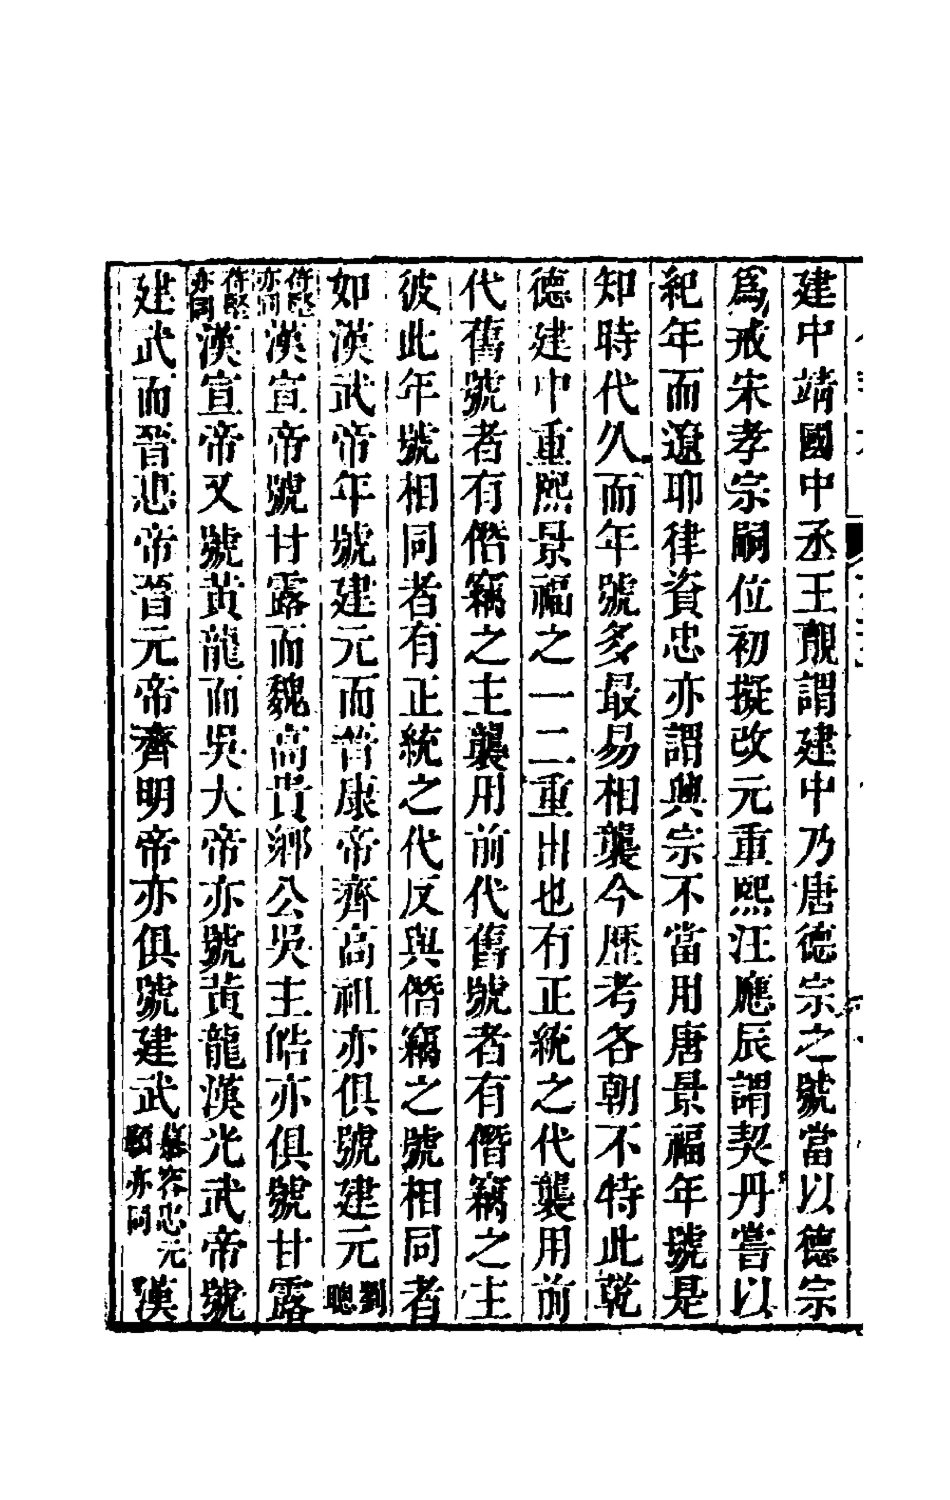 建中靖國中丞王覿謂建中乃唐德宗之號當以德宗
爲戒宋孝宗嗣位初擬改元重熙汪應辰謂契丹嘗以
紀年而遼耶律資忠亦謂興宗不當用唐景福年號是
知時代久而年號多最易相襲今歷考各朝不特此乾
德建中重熙景福之一二重出也有正統之代襲用前
代舊號者有僭竊之主襲用前代舊號者有僭竊之主
彼此年號相同者有正統之代反與僭竊之號相同者
如漢武帝年號建元而晉康帝齊高祖亦俱號建元劉聰
苻堅亦同漢宣帝號甘露而魏高貴鄉公吳主皓亦俱號甘露
苻堅亦同漢宣帝又號黃龍而吳大帝亦號黃龍漢光武帝號
建武而晉惠帝晉元帝齊明帝亦俱號建武慕容忠元顥亦同漢